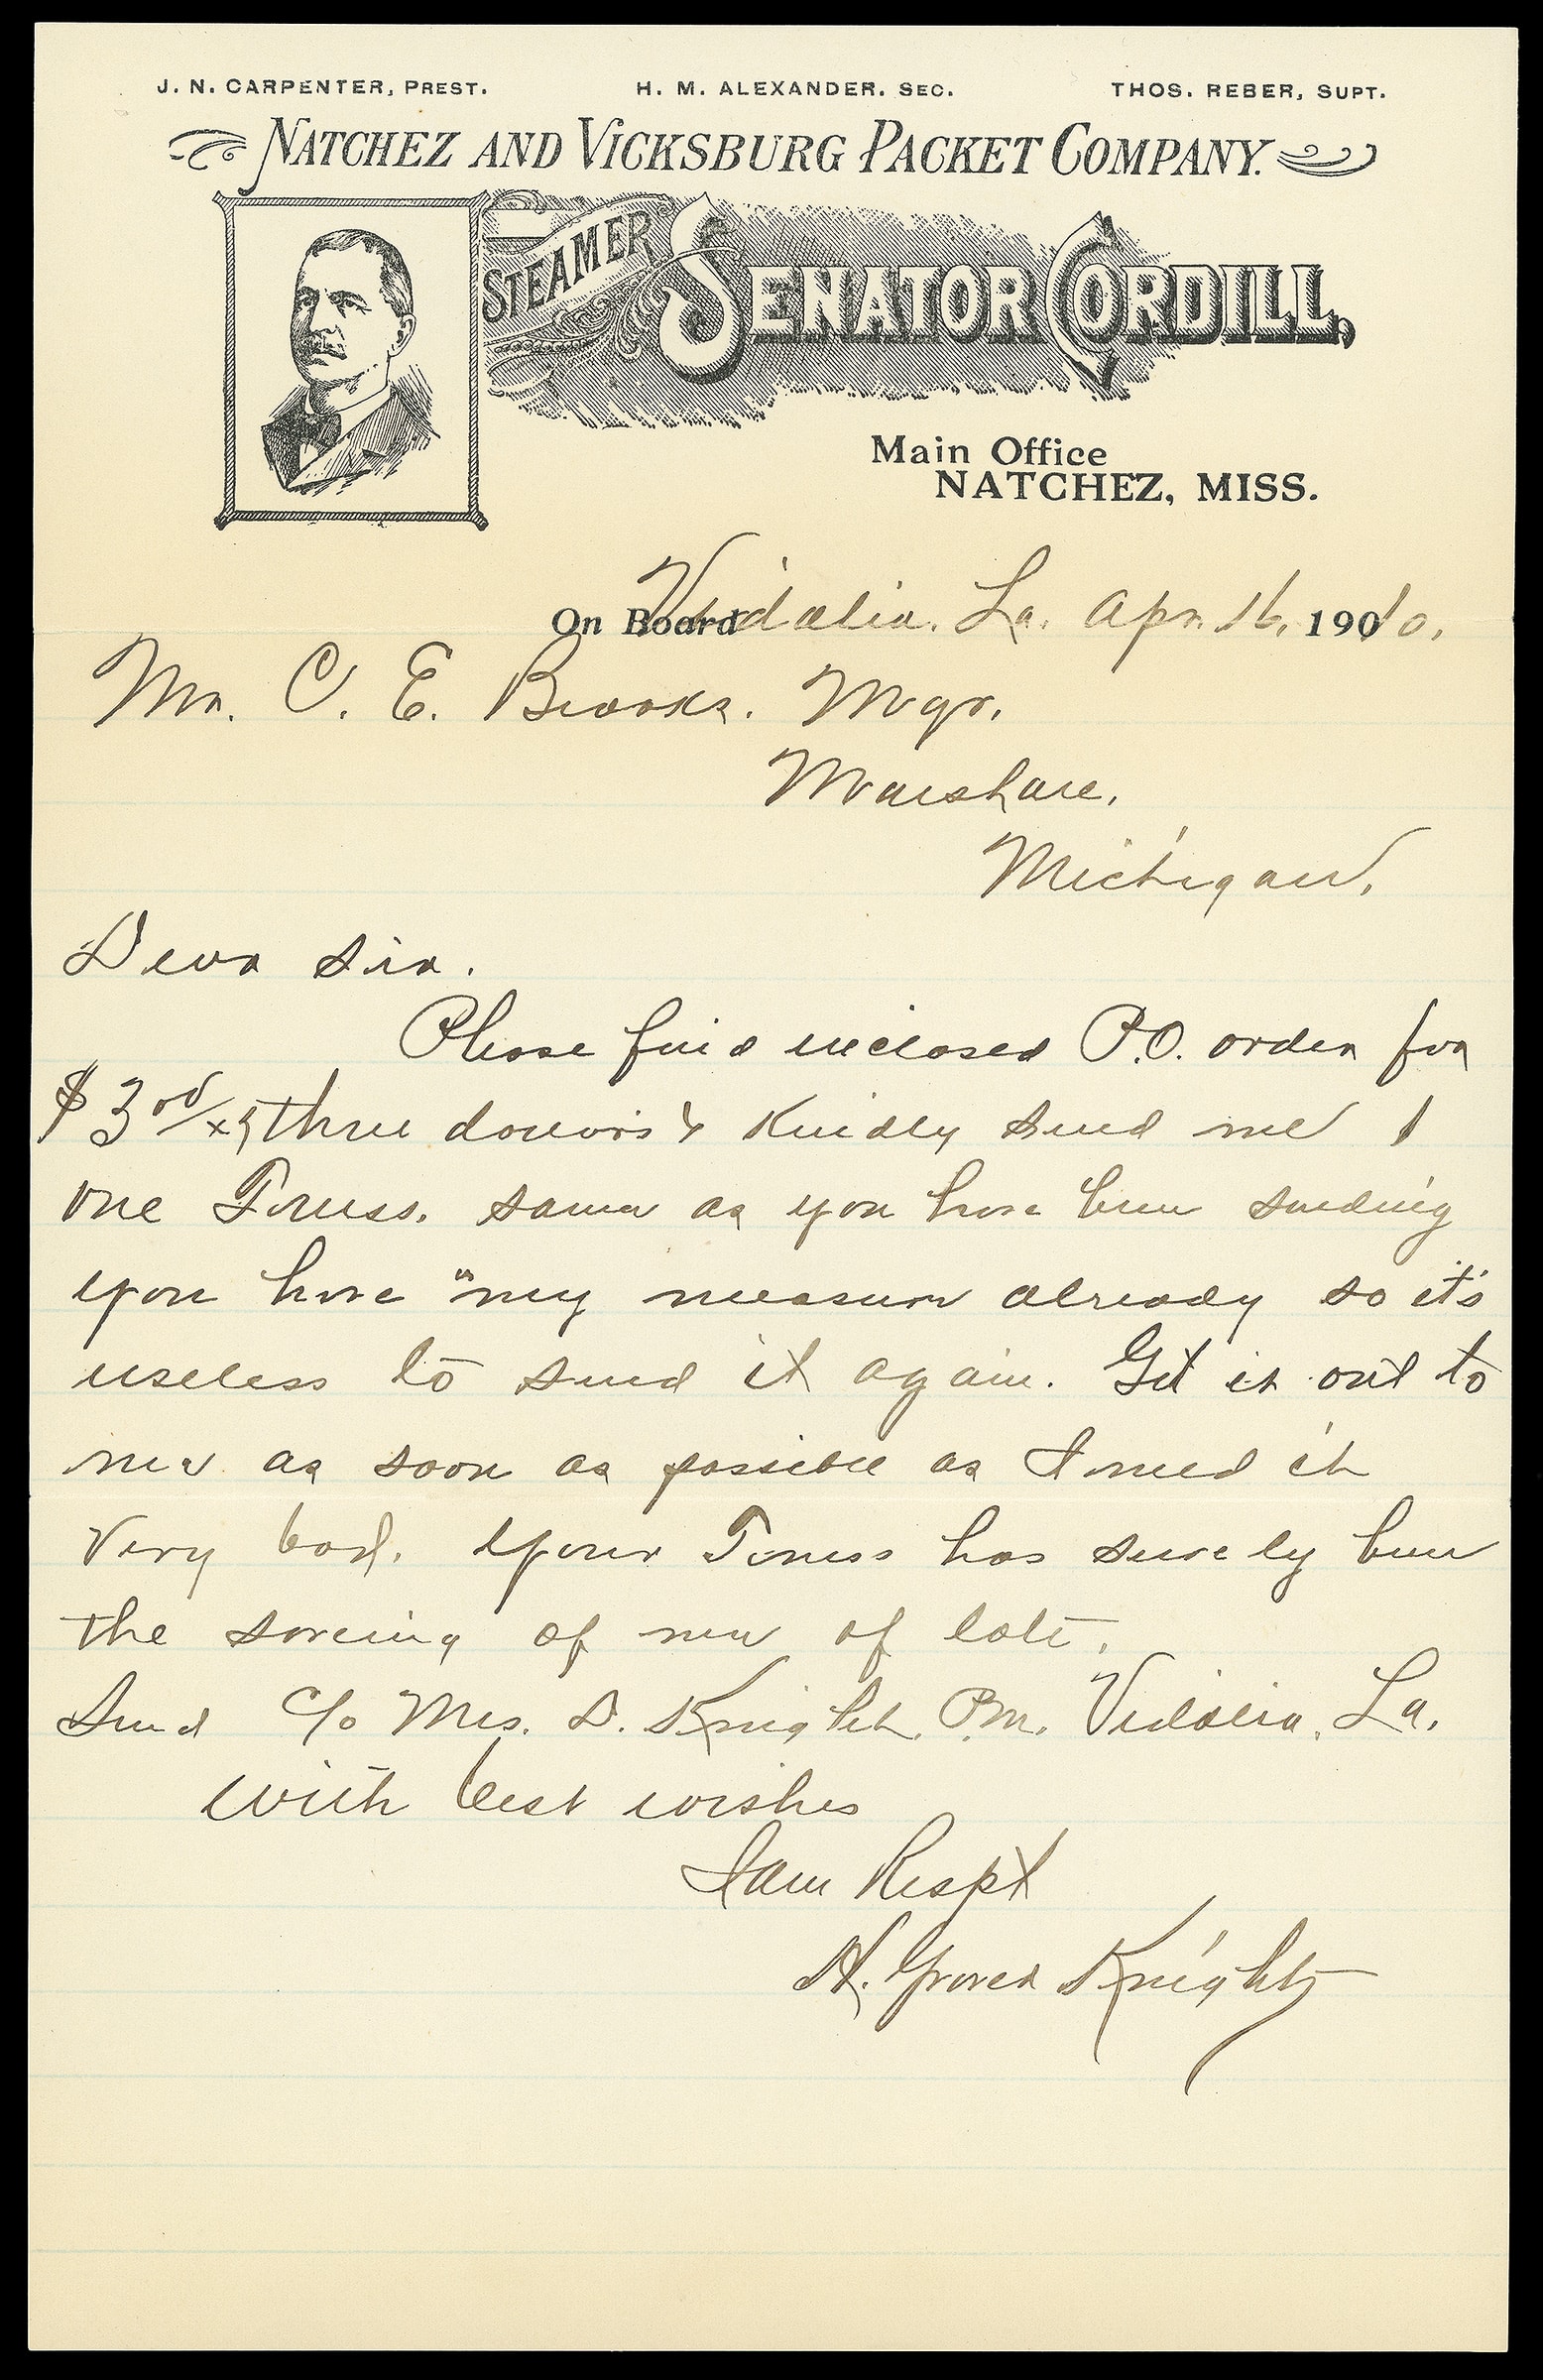 J. N. CARPENTER, PREST. H. M. ALEXANDER. SEC. THOS. REBER, SUPT.
NATCHEZ AND VICKSBURG PACKET COMPANY.
STEAMER SENATOR CORDILL,
Main Office
NATCHEZ, MISS.
On Board Vidalia. La. Apr. 16, 1910.
Mr. C. E. Brooks. Mgr.
Marshall,
Michigan,
Dear Sir.
Please find inclosed P.O. order for
$3 00/xx (three dollars) Kindly send me 1
one Truss. same as you have been sending
you have my measure already so it's
useless to send it again. Get it out to
me as soon as possible as I need it
very bad. Your Truss has surely been
the saveing of me of late.
Send c/o Mrs. D. Knight. P.M. Vidalia. La.
with best wishes
I am Respt
H. Grover Knight